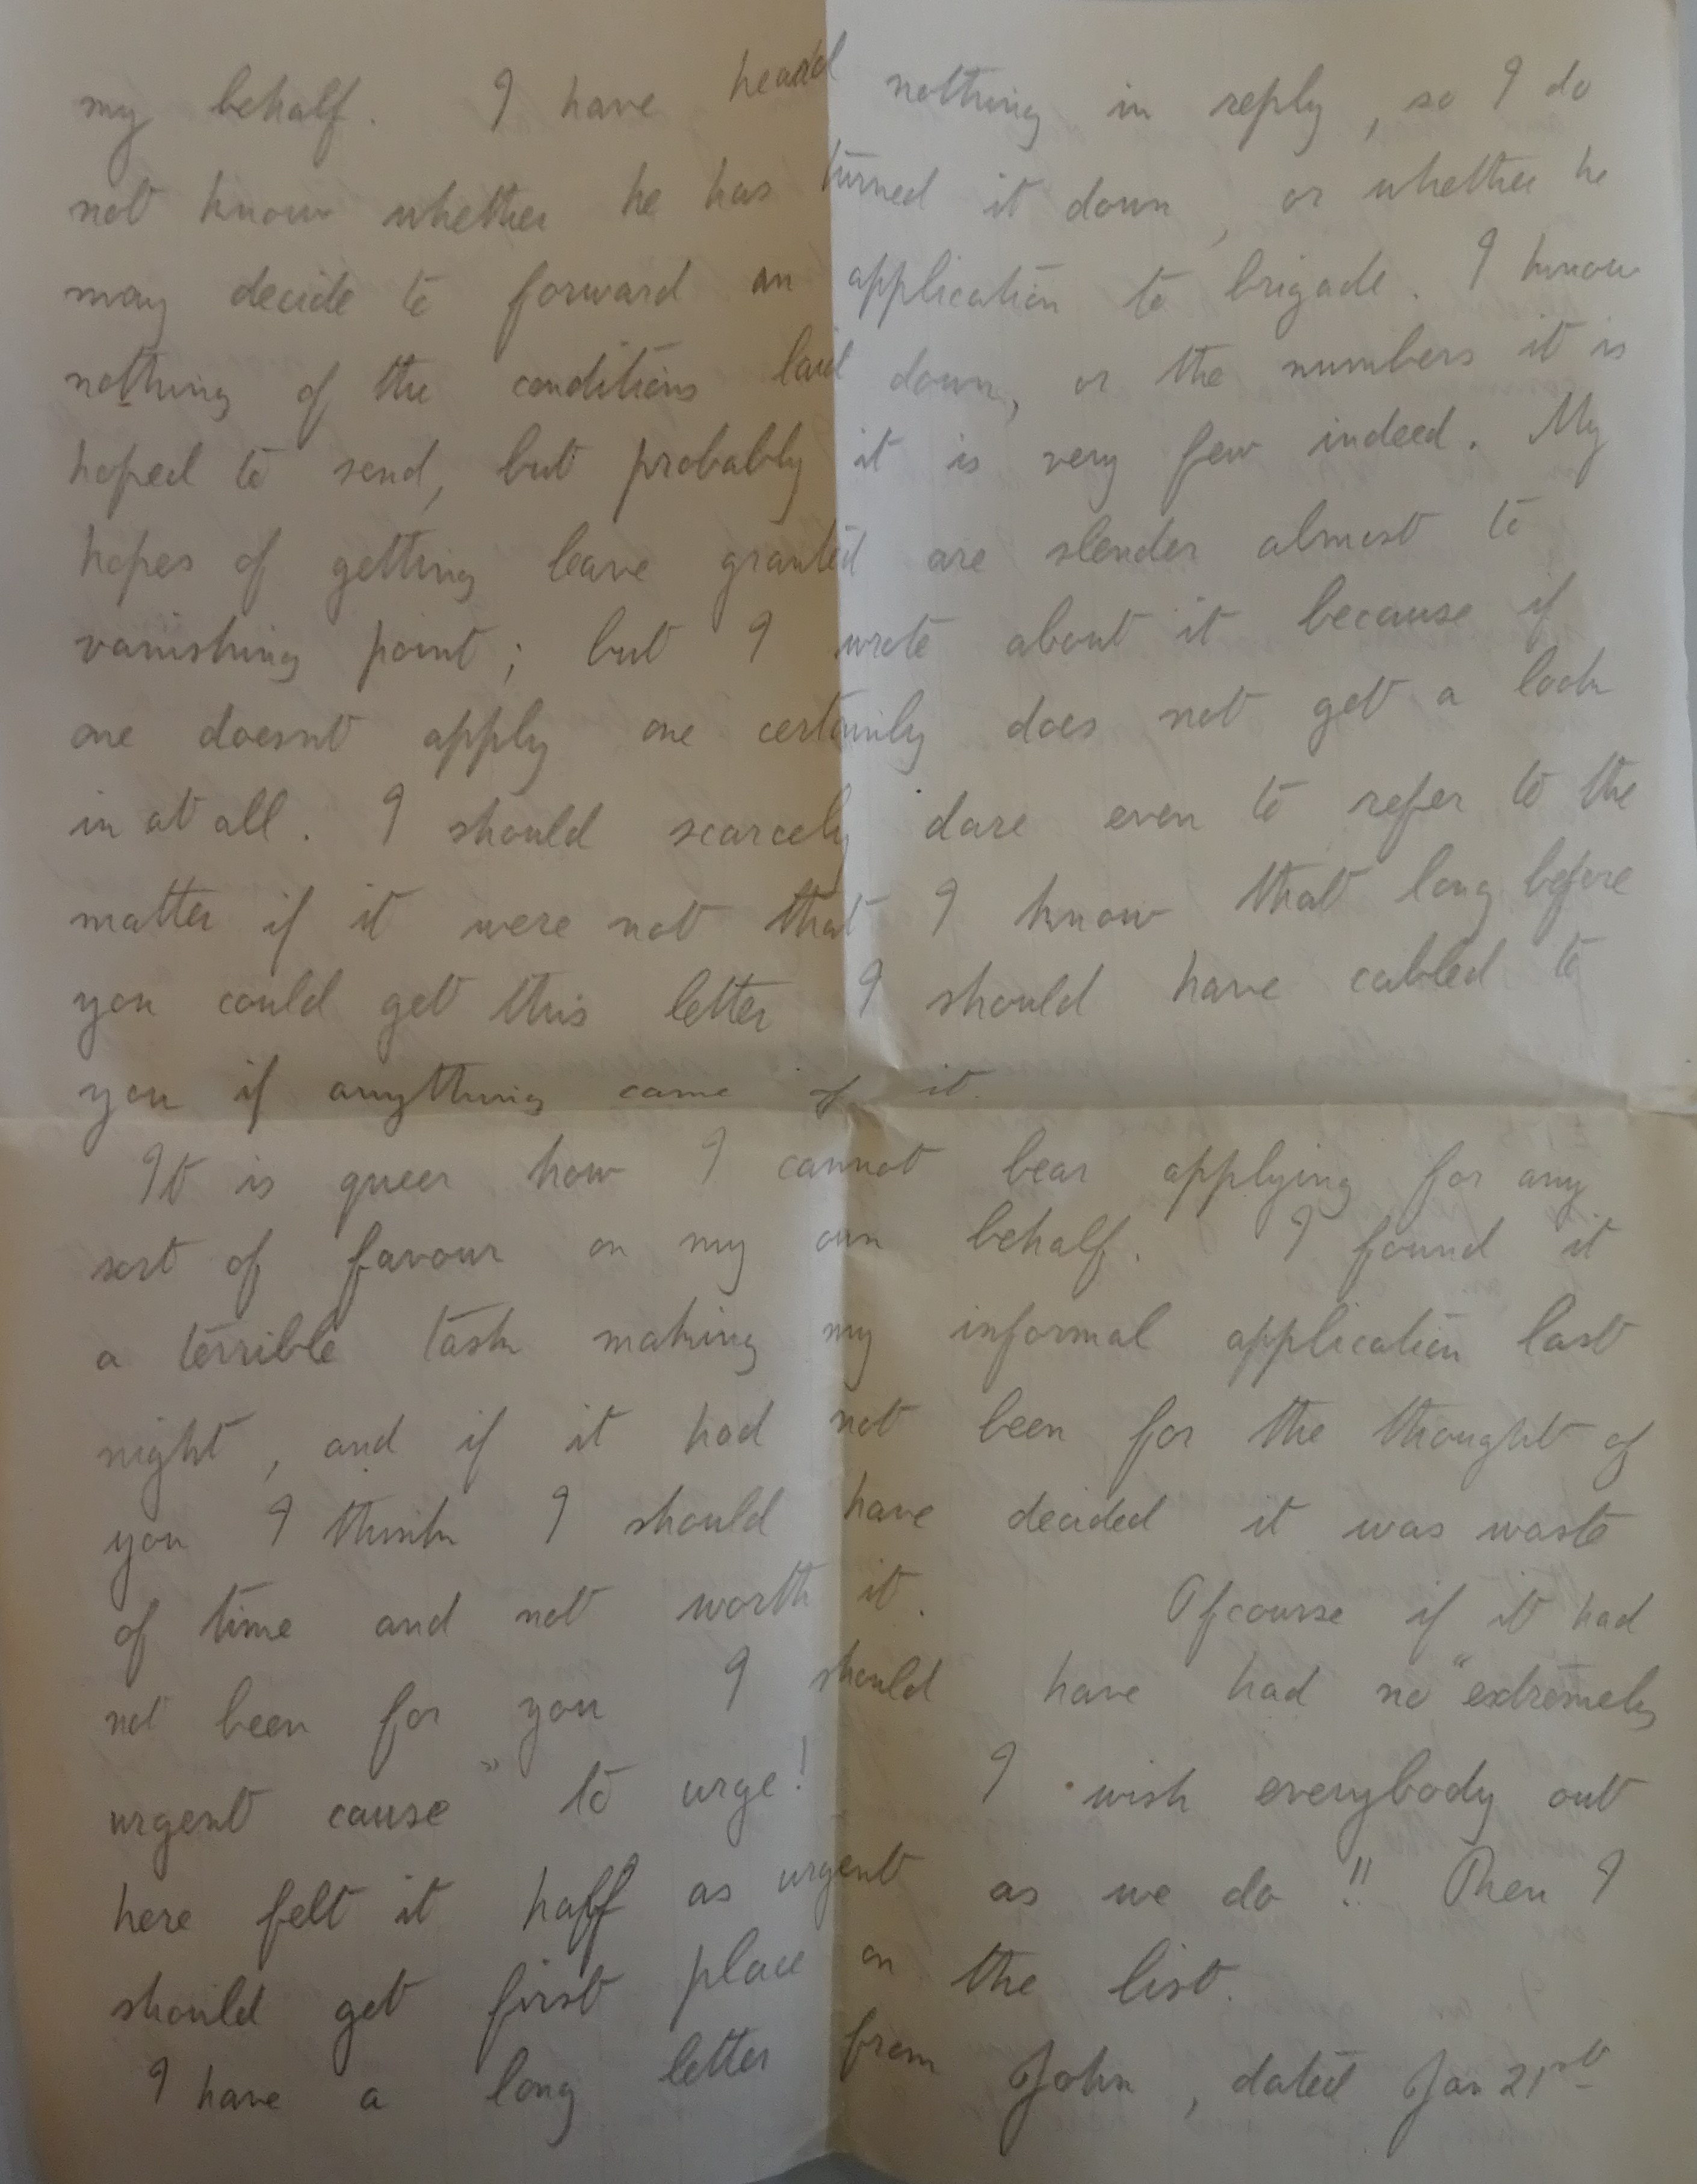 my behalf. I have heard nothing in reply, so I do
not know whether he has turned it down, or whether he
may decide to forward an application to brigade. I know
nothing of the conditions laid down, or the numbers it is
hoped to send, but probably it is very few indeed. My
hopes of getting leave granted are slender almost to
vanishing point; but I wrote about it because if
one doesnt apply one certainly does not get a look
in at all. I should scarcely dare even to refer to the
matter if it were not that I know that long before
you could get this letter I should have cabled to
you if anything came of it.
It is queer how I cannot bear applying for any
sort of favour on my own behalf. I found it
a terrible task making my informal application last
night, and if it had not been for the thought of
you I think I should have decided it was waste
of time and not worth it. Ofcourse if it had
not been for you I should have had no "extremely
urgent cause" to urge! I wish everybody out
here felt it half as urgent as we do!! Then I
should get first place on the list.
I have a long letter from John, dated Jan 21st